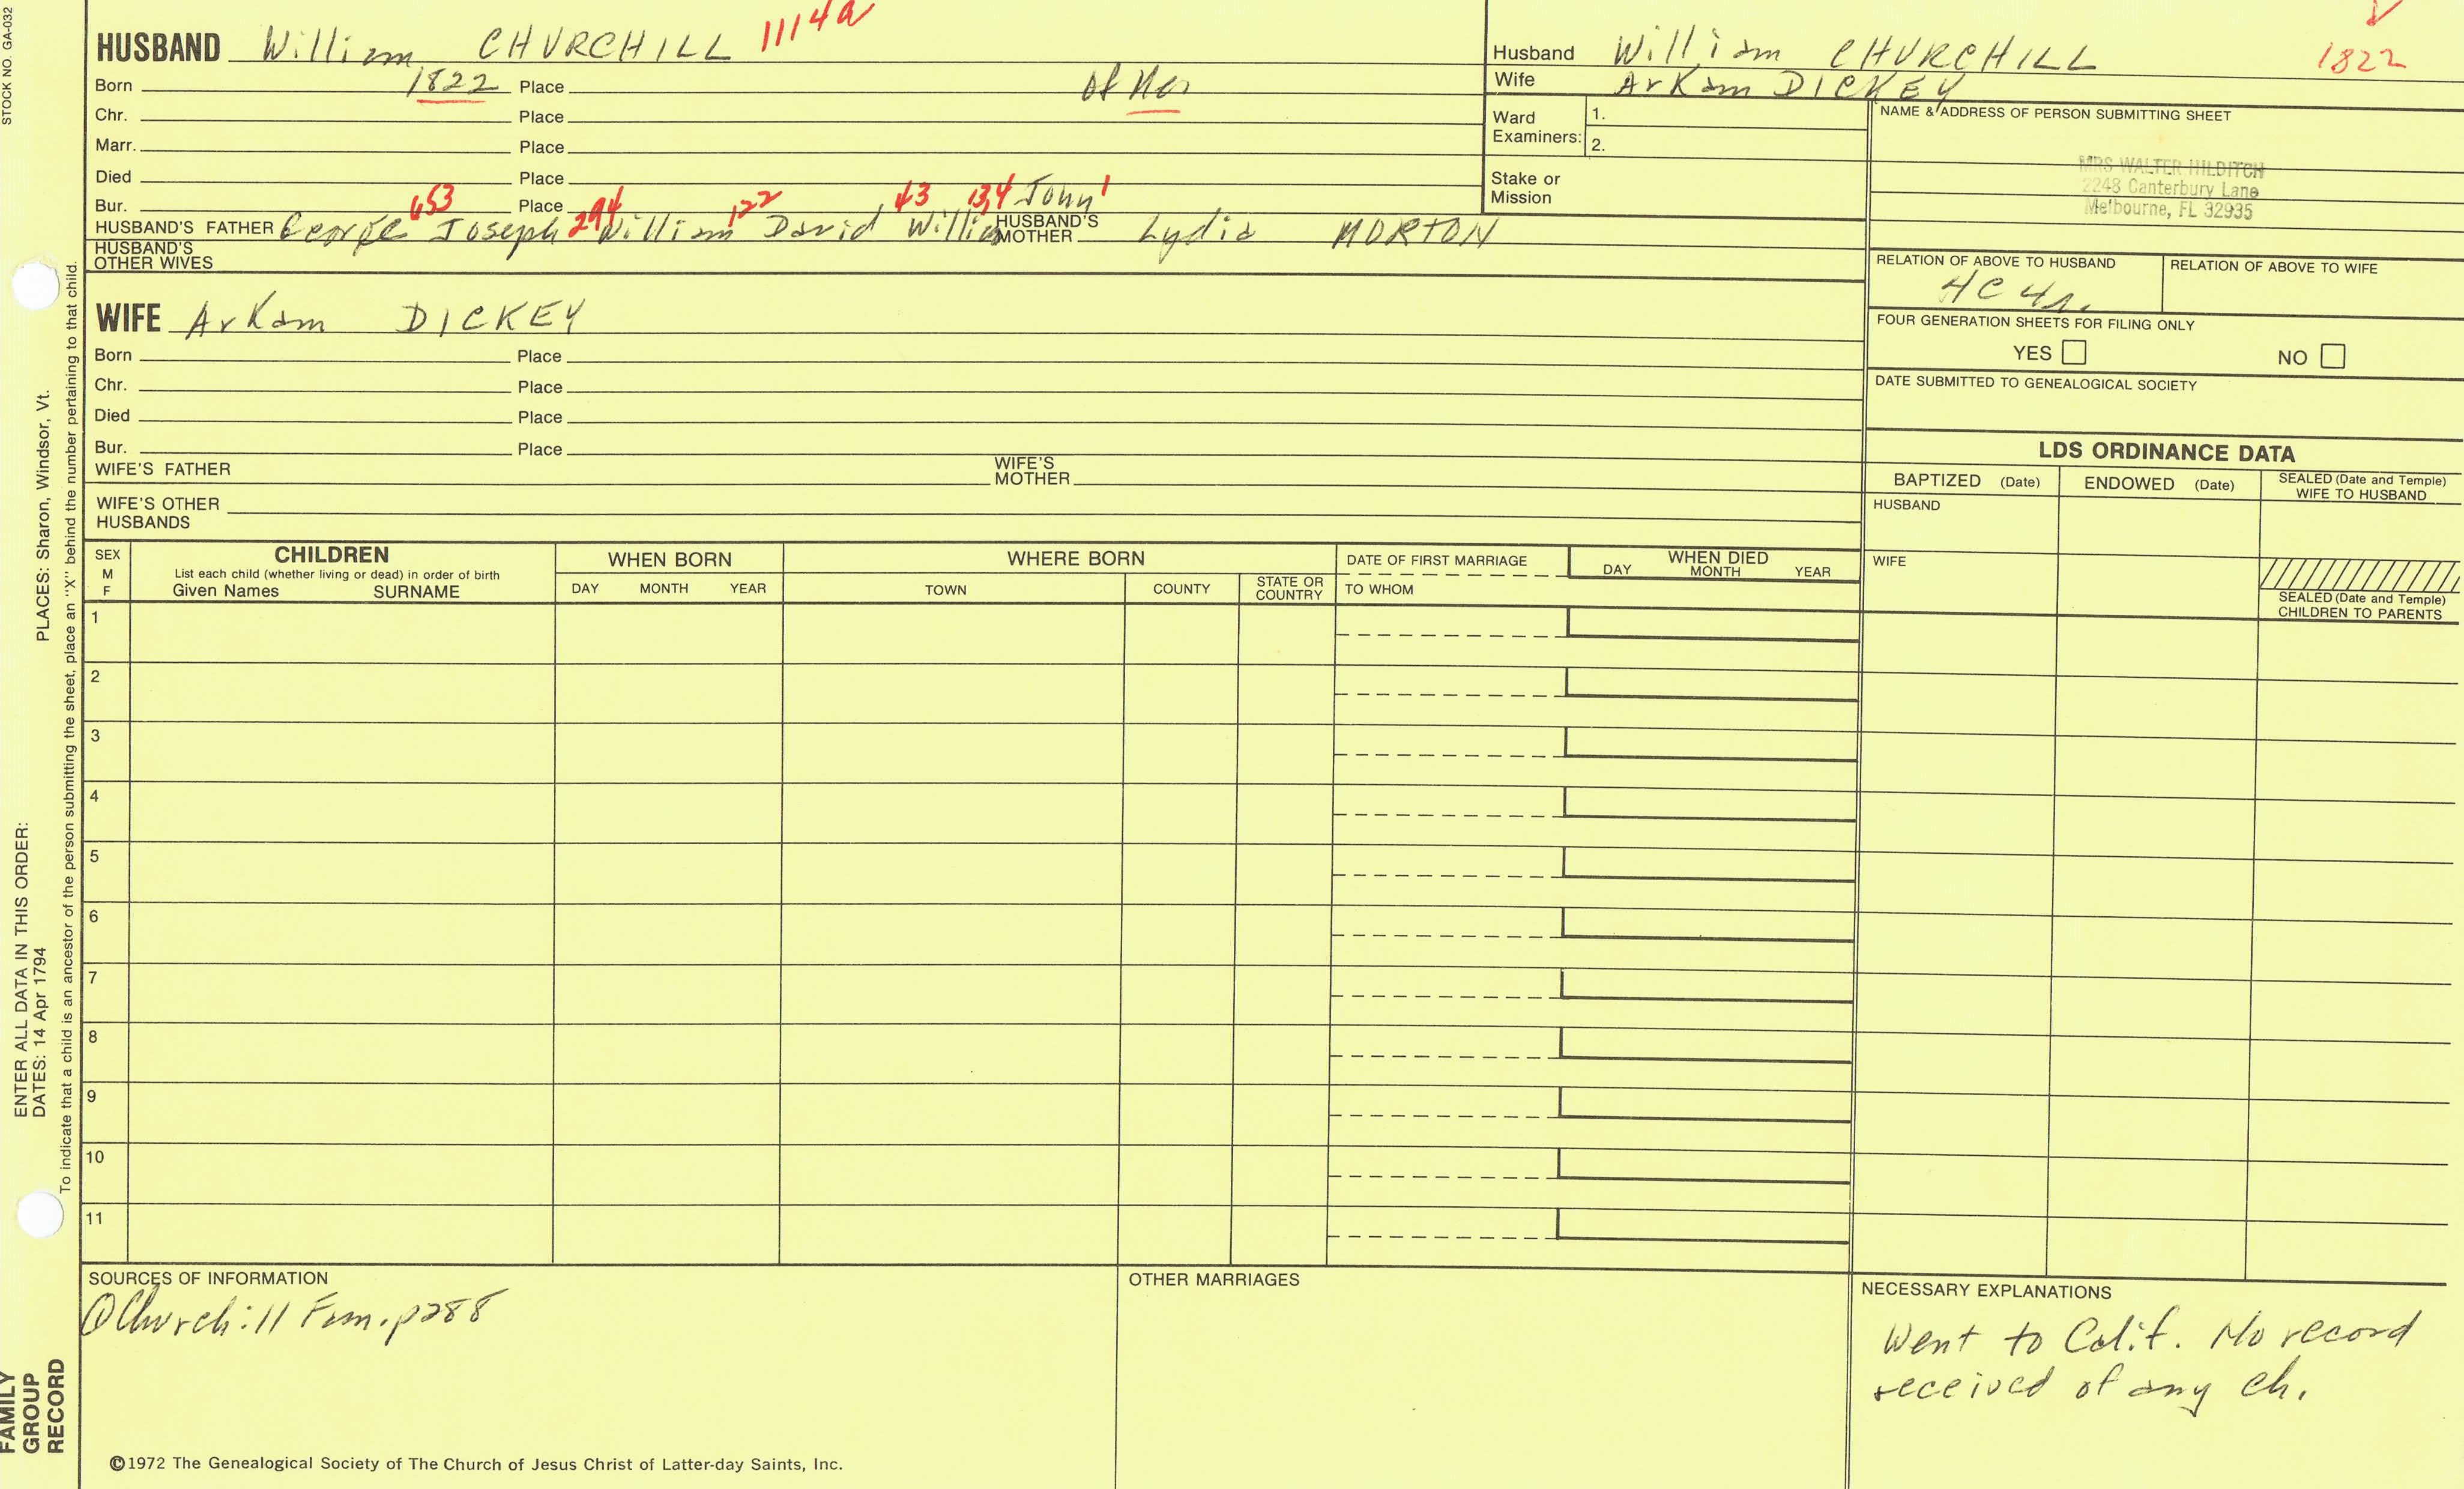 STOCK NO. GA-032
HUSBAND William CHURCHILL 1114a
Born 1822 Place of
Chr. Place
Marr. Place
Died Place
Bur. Place John 1
HUSBAND'S FATHER George 653 Joseph 294 William 122 David 43 William 13,4 HUSBAND'S MOTHER Lydia MORTON
HUSBAND'S OTHER WIVES
WIFE Arkam DICKEY
Born Place
Chr. Place
Died Place
Bur. Place
WIFE'S FATHER WIFE'S MOTHER
WIFE'S OTHER HUSBANDS
Husband William CHURCHILL 1822
Wife Arkam DICKEY
Ward Examiners: 1.
2.
Stake or Mission
NAME & ADDRESS OF PERSON SUBMITTING SHEET
MRS WALTER HILDITCH
2248 Canterbury Lane
Melbourne, FL 32935
RELATION OF ABOVE TO HUSBAND RELATION OF ABOVE TO WIFE
FOUR GENERATION SHEETS FOR FILING ONLY
YES NO
DATE SUBMITTED TO GENEALOGICAL SOCIETY
LDS ORDINANCE DATA
BAPTIZED (Date) ENDOWED (Date) SEALED (Date and Temple) WIFE TO HUSBAND
HUSBAND
WIFE
SEALED (Date and Temple) CHILDREN TO PARENTS
SEX M F
CHILDREN
List each child (whether living or dead) in order of birth
Given Names SURNAME
WHEN BORN
DAY MONTH YEAR
WHERE BORN
TOWN COUNTY STATE OR COUNTRY
DATE OF FIRST MARRIAGE
TO WHOM
WHEN DIED
DAY MONTH YEAR
1
2
3
4
5
6
7
8
9
10
11
SOURCES OF INFORMATION
Churchill Fam. p288
OTHER MARRIAGES
NECESSARY EXPLANATIONS
Went to Calif. No record
received of any ch.
©1972 The Genealogical Society of The Church of Jesus Christ of Latter-day Saints, Inc.
FAMILY GROUP RECORD
ENTER ALL DATA IN THIS ORDER:
DATES: 14 Apr 1794 PLACES: Sharon, Windsor, Vt.
To indicate that a child is an ancestor of the person submitting the sheet, place an "X" behind the number pertaining to that child.